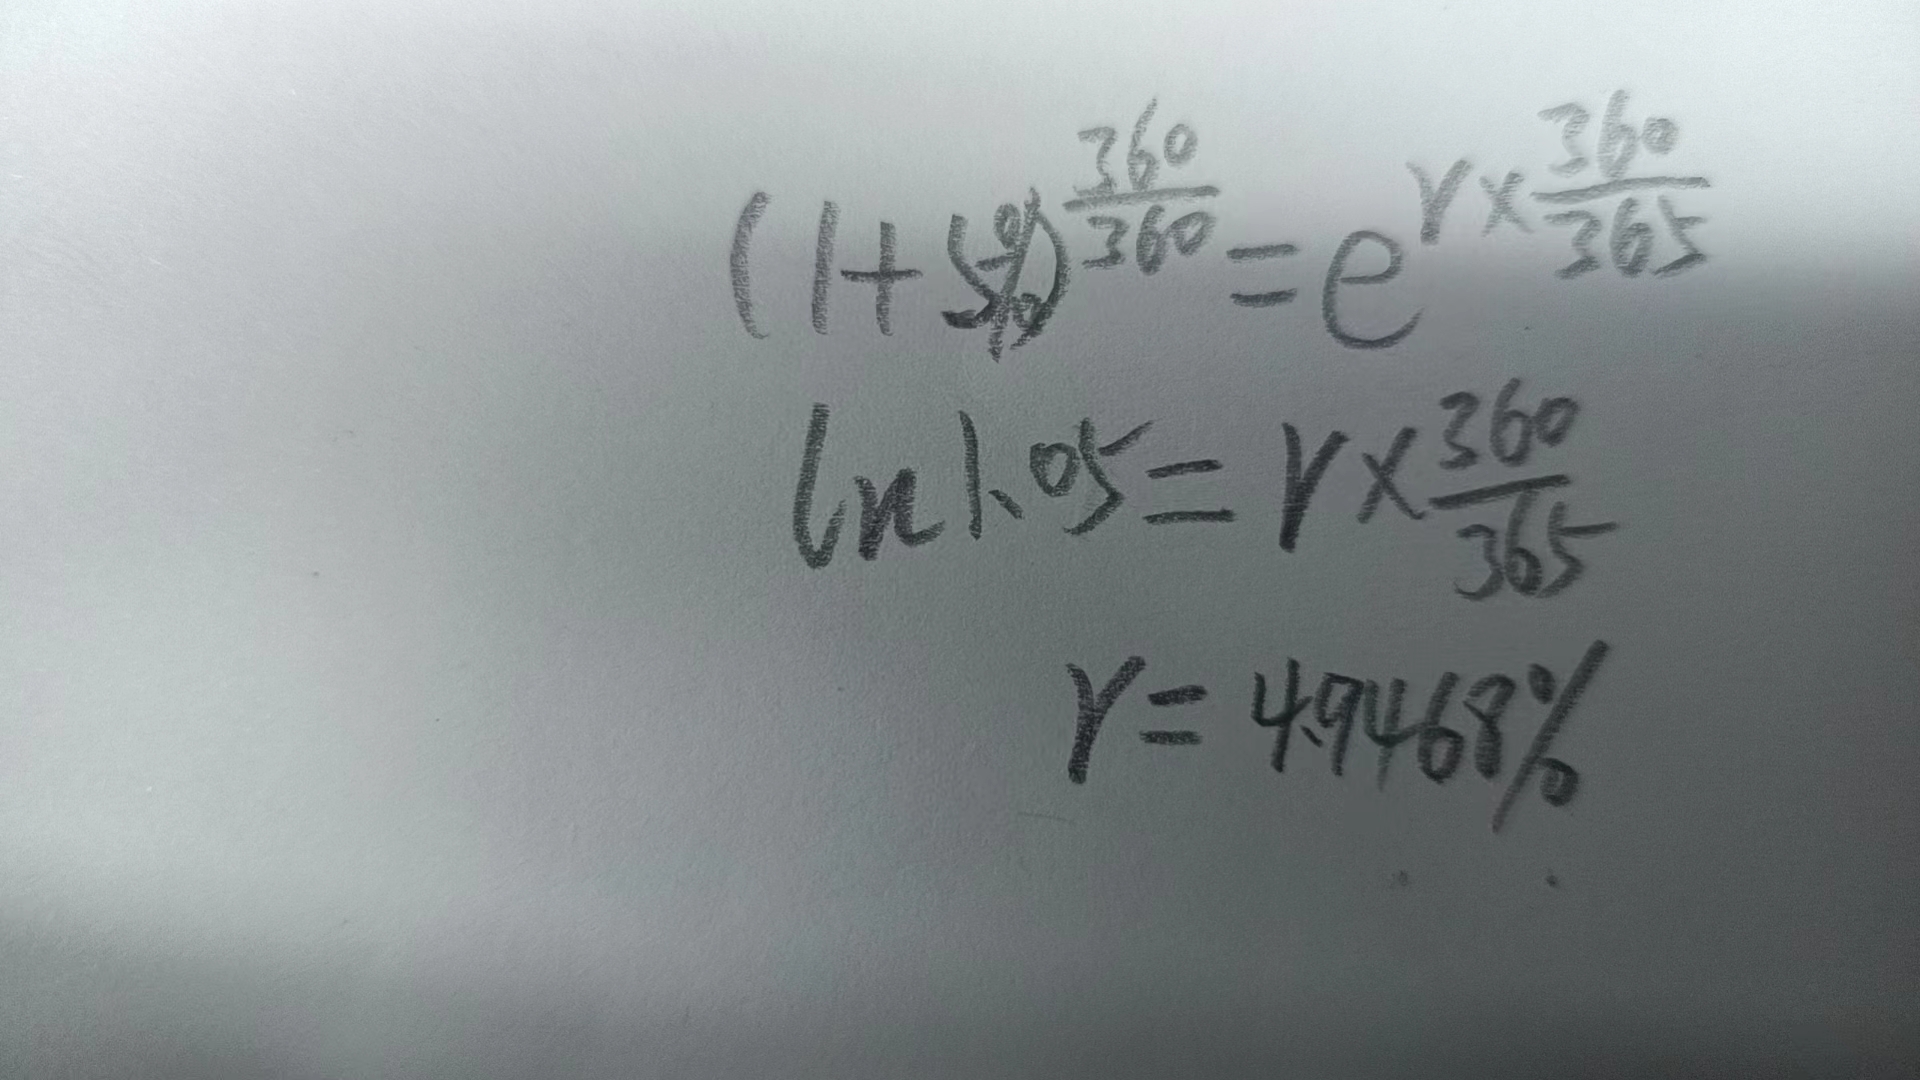 (1+5%)^(360/360) = e^(r×360/365)
ln1.05 = r×360/365
r = 4.9468%